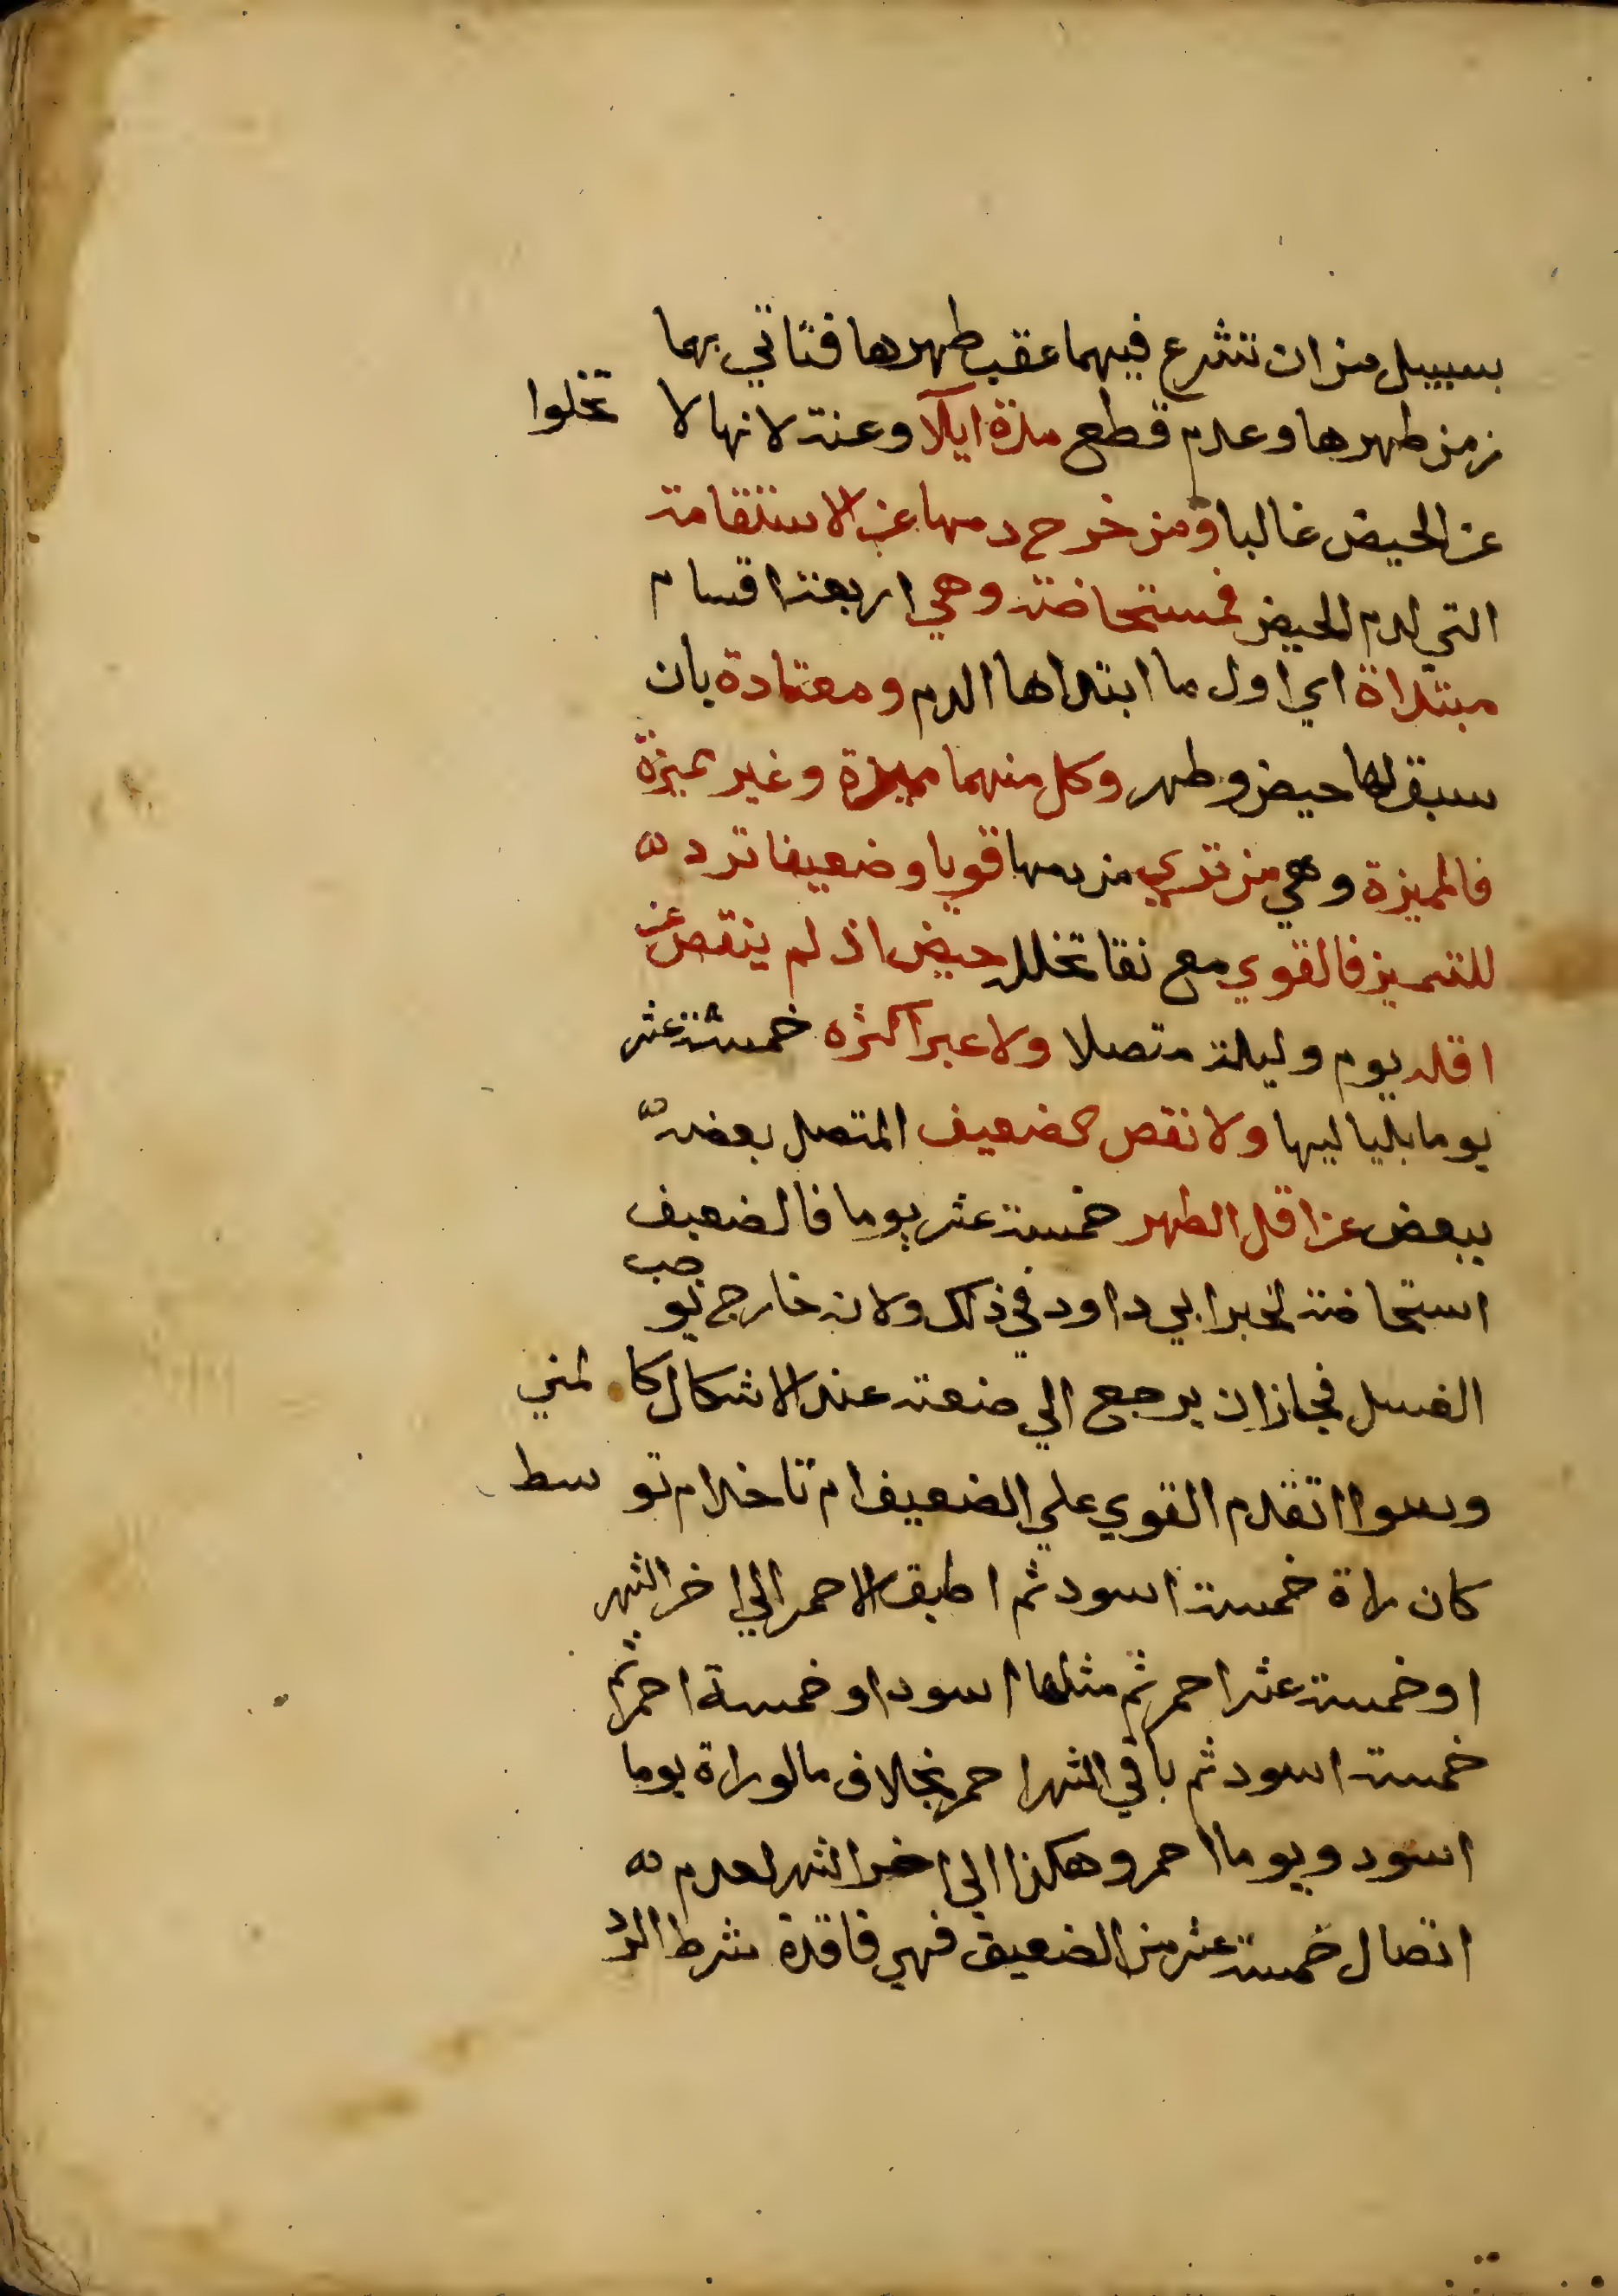 بسبيل من ان تشرع فيهما عقب طهرها فتاتي بهما
زمن طهرها وعدم قطع مدة ايلآ وعنة لانها لا تخلوا
عن الحيض غالبا ومن خرج دمها عن الاستقامة
التي لدم الحيض فمستحاضة وهي اربعة اقسام
مبتداة اي اول ما ابتداها الدم ومعتادة بان
سبق لها حيض وطهر وكل منهما مميزة وغير مميزة
فالمميزة وهي من تري من دمها قويا وضعيفا ترد
للتمييز فالقوي مع نقا تخلله حيض اذ لم ينقص عن
اقله يوم وليلة متصلا ولا عبر اكثره خمسة عشر
يوما بلياليها ولا نقص لضعيف المتصل بعضه
ببعض عن اقل الطهر خمسة عشر يوما فالضعيف
استحاضة لخبر ابي داود في ذلك ولانه خارج يوجب
الغسل فجاز ان يرجع الي صفته عند الاشكال كالمني
وسوا تقدم القوي علي الضعيف ام تاخر ام توسط
كان راة خمسة اسود ثم اطبق الاحمر الي اخر الشهر
او خمسة عشر احمر ثم مثلها اسود او خمسة احمر ثم
خمسة اسود ثم باقي الشهر احمر بخلاف مالو راة يوما
اسود ويوما احمر وهكذا الي اخر الشهر لعدم
اتصال خمسة عشر من الضعيف فهي فاقدة شرط الرد